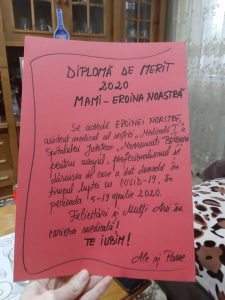 DIPLOMĂ DE MERIT
2020
MAMI - EROINA NOASTRĂ
Se acordă EROINEI NOASTRE,
asistent medical al secției „Medicală I” a
Spitalului Județean „Mavromati” Botoșani
pentru curajul, profesionalismul și
dăruirea de care a dat dovadă în
timpul luptei cu COVID-19, în
perioada 5-19 aprilie 2020.
Felicitări și Mulți Ani în
cariera medicală!
TE IUBIM!
Ale și